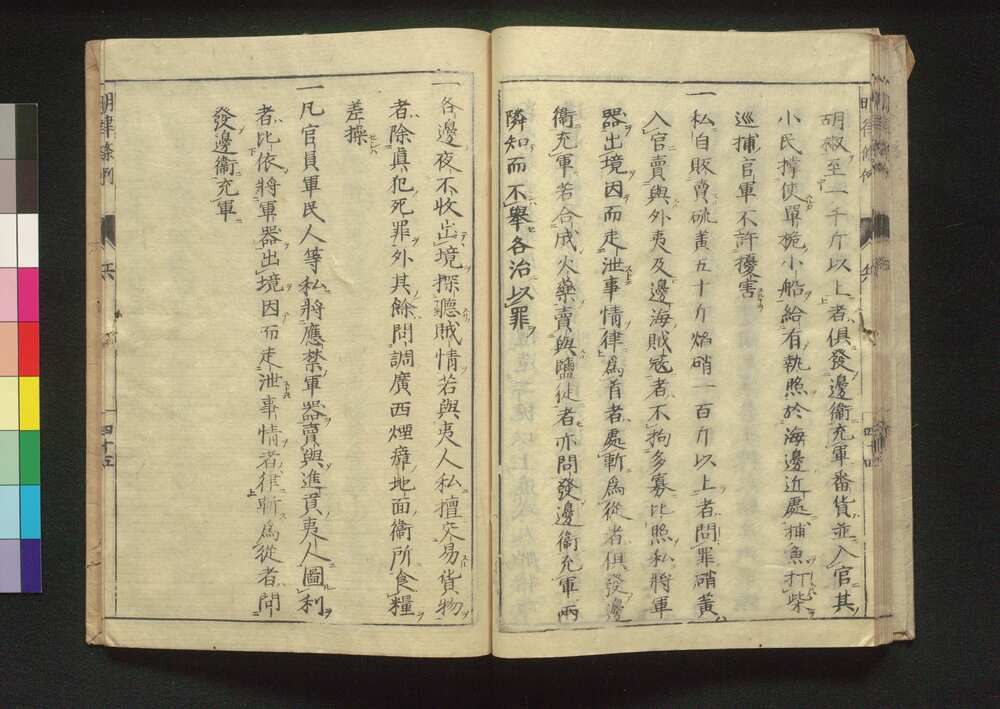 胡椒至一千斤以上者俱發邊衞充軍番貨並入官其
小民撐使單桅小船給有執照於海邊近處捕魚打柴
巡捕官軍不許擾害
一私自販賣硫黃五十斤焰硝一百斤以上者問罪硝黃
入官賣與外夷及邊海賊寇者不拘多寡比照私將軍
器出境因而走泄事情律爲首者處斬爲從者俱發邊
衞充軍若合成火藥賣與鹽徒者亦問發邊衞充軍兩
隣知而不舉各治以罪
四十四
一各邊夜不收出境探聽賊情若與夷人私擅交易貨物
者除眞犯死罪外其餘問調廣西煙瘴地面衞所食糧
差操
一凡官員軍民人等私將應禁軍器賣與進貢夷人圖利
者比依將軍器出境因而走泄事情者律斬爲從者問
發邊衞充軍
明律條例
兵
四十五